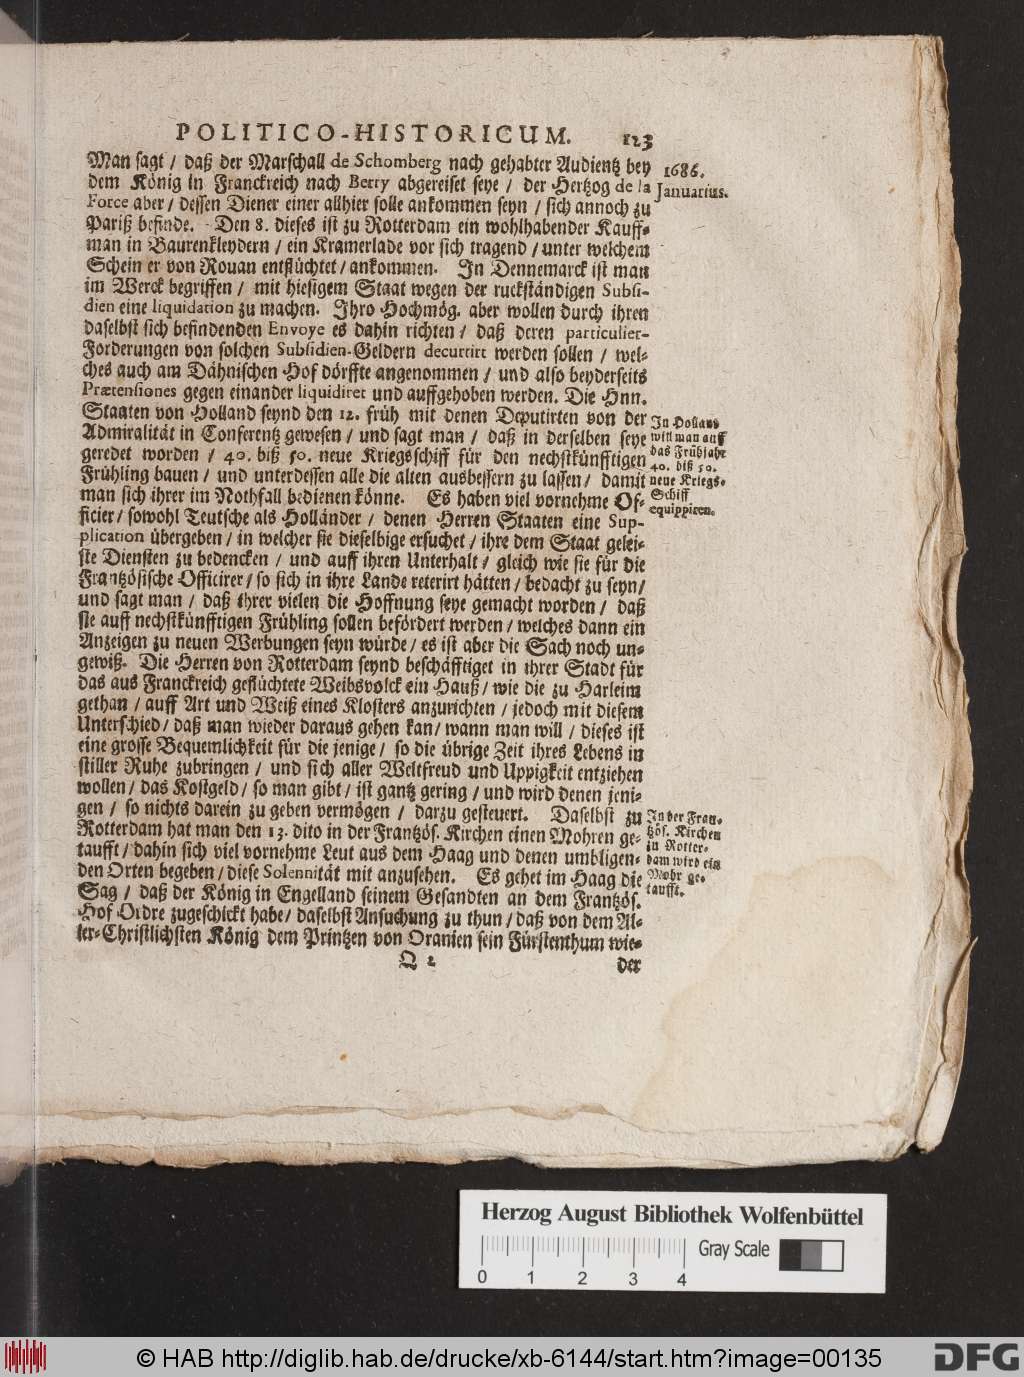 POLITICO-HISTORICUM. 123
Man sagt / daß der Marschall de Schomberg nach gehabter Audientz bey
dem König in Franckreich nach Berry abgereiset seye / der Hertzog de la
Force aber / dessen Diener einer allhier solle ankommen seyn / sich annoch zu
Pariß befinde. Den 8. dieses ist zu Rotterdam ein wohlhabender Kauff-
man in Baurenkleydern / ein Kramerlade vor sich tragend / unter welchem
Schein er von Rouan entflüchtet / ankommen. In Dennemarck ist man
im Werck begriffen / mit hiesigem Staat wegen der ruckständigen Subsi-
dien eine liquidation zu machen. Ihro Hochmög. aber wollen durch ihren
daselbst sich befindenden Envoye es dahin richten / daß deren particulier-
Forderungen von solchen Subsidien-Geldern decurtirt werden sollen / wel-
ches auch am Dähnischen Hof dörffte angenommen / und also beyderseits
Prætensiones gegen einander liquidiret und auffgehoben werden. Die Hnn.
Staaten von Holland seynd den 12. früh mit denen Deputirten von der
Admiralität in Conferentz gewesen / und sagt man / daß in derselben seye
geredet worden / 40. biß 50. neue Kriegsschiff für den nechstkünfftigen
Frühling bauen / und unterdessen alle die alten ausbessern zu lassen / damit
man sich ihrer im Nothfall bedienen könne. Es haben viel vornehme Of-
ficier / sowohl Teutsche als Holländer / denen Herren Staaten eine Sup-
plication übergeben / in welcher sie dieselbige ersuchet / ihre dem Staat gelei-
ste Diensten zu bedencken / und auff ihren Unterhalt / gleich wie sie für die
Frantzösische Officirer / so sich in ihre Lande reterirt hätten / bedacht zu seyn /
und sagt man / daß ihrer vielen die Hoffnung seye gemacht worden / daß
sie auff nechstkünfftigen Frühling sollen befördert werden / welches dann ein
Anzeigen zu neuen Werbungen seyn würde / es ist aber die Sach noch un-
gewiß. Die Herren von Rotterdam seynd beschäfftiget in ihrer Stadt für
das aus Franckreich geflüchtete Weibsvolck ein Hauß / wie die zu Harleim
gethan / auff Art und Weiß eines Klosters anzurichten / jedoch mit diesem
Unterschied / daß man wieder daraus gehen kan / wann man will / dieses ist
eine grosse Bequemlichkeit für die jenige / so die übrige Zeit ihres Lebens in
stiller Ruhe zubringen / und sich aller Weltfreud und Uppigkeit entziehen
wollen / das Kostgeld / so man gibt / ist gantz gering / und wird denen jeni-
gen / so nichts darein zu geben vermögen / darzu gesteuert. Daselbst zu
Rotterdam hat man den 13. dito in der Frantzös. Kirchen einen Mohren ge-
taufft / dahin sich viel vornehme Leut aus dem Haag und denen umbligen-
den Orten begeben / diese Solennität mit anzusehen. Es gehet im Haag die
Sag / daß der König in Engelland seinem Gesandten an dem Frantzös.
Hof Ordre zugeschickt habe / daselbst Ansuchung zu thun / daß von dem Al-
ler-Christlichsten König dem Printzen von Oranien sein Fürstenthum wie-
Q 2 der
1686.
Januarius.
In Holland
will man auff
das Frühjahr
40. biß 50.
neue Kriegs-
Schiff
equippiren.
In der Fran-
tzös. Kirchen
zu Rotter-
dam wird ein
Mohr ge-
taufft.
Herzog August Bibliothek Wolfenbüttel
Gray Scale
0 1 2 3 4
© HAB http://diglib.hab.de/drucke/xb-6144/start.htm?image=00135
DFG